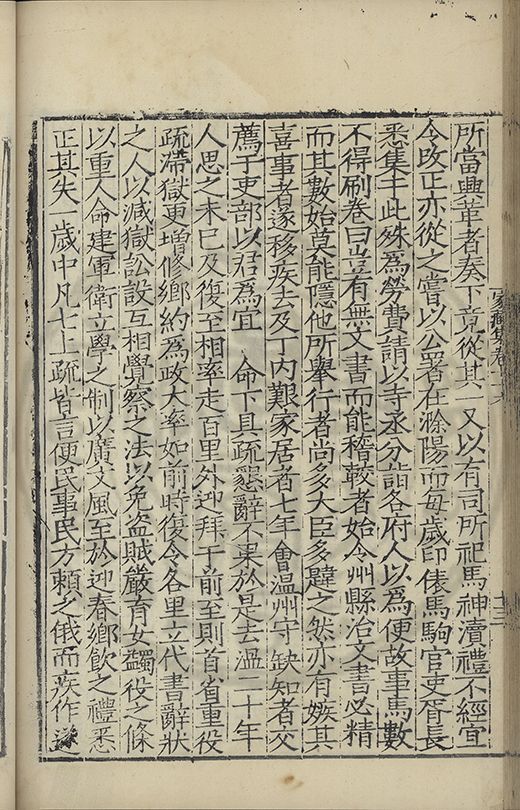 所當興革者奏下竟從其一又以有司所祀馬神瀆禮不經宜
令改正亦從之嘗以公署在滁陽而每歲印俵馬駒官吏胥長
悉集于此殊爲勞費請以寺丞分詣各府人以爲便故事馬數
不得刷卷曰豈有無文書而能稽較者始令州縣治文書必精
而其數始莫能隱他所舉行者尚多大臣多韙之然亦有嫉其
喜事者遂移疾去及丁内艱家居者七年會温州守缺知者交
薦于吏部以君爲宜 命下具疏懇辭不果於是去温二十年
人思之未已及復至相率走百里外迎拜于前至則首省重役
疏滯獄更增修鄉約爲政大率如前時復令各里立代書辭狀
之人以減獄訟設互相覺察之法以免盗賊嚴育女蠲役之條
以重人命建軍衛立學之制以廣文風至於迎春鄉飲之禮悉
正其失一歲中凡七上疏皆言便民事民方賴之俄而疾作遂
家藏集卷
十三